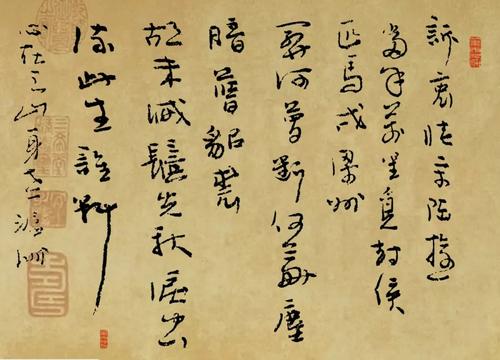 訴衷情宋陸游
當年萬里覓封侯
匹馬戍梁州
關河夢斷何處塵
暗舊貂裘
胡未滅鬢先秋淚空
流此生誰料
心在天山身老滄洲